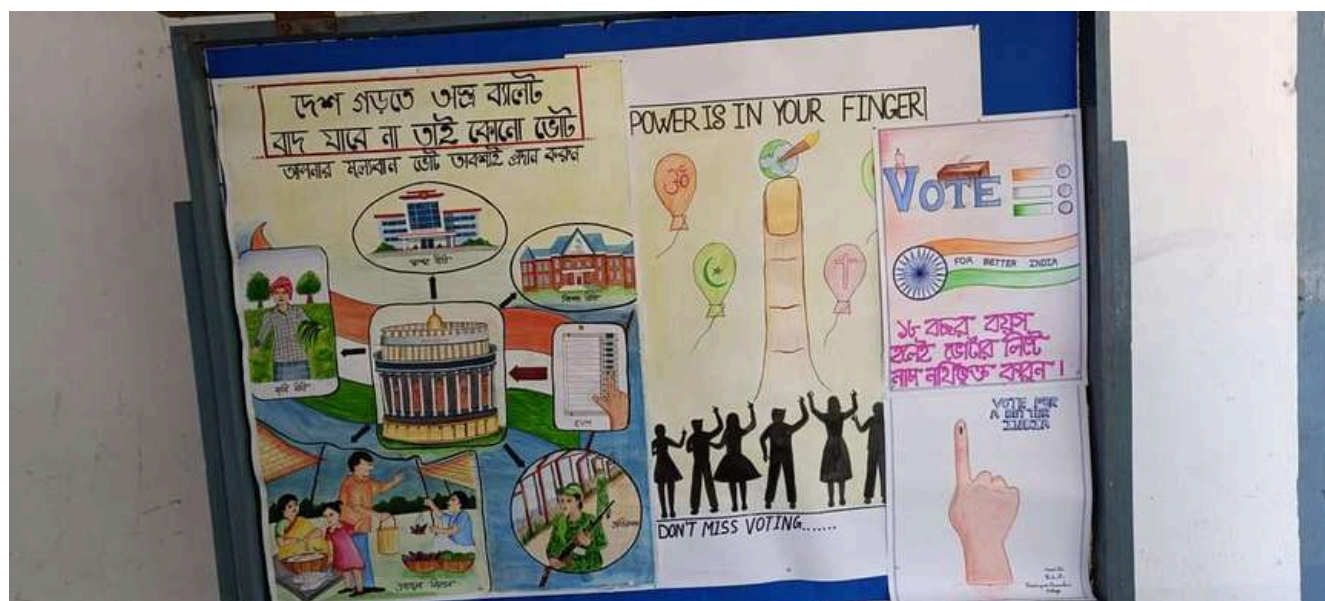 দেশ গড়তে অস্ত্র ব্যালট
বাদ যাবে না তাই কোনো ভোট
আপনার মূল্যবান ভোট অবশ্যই প্রদান করুন
EVM
POWER IS IN YOUR FINGER
DON'T MISS VOTING.......
VOTE
FOR BETTER INDIA
১৮ বছর বয়স
হলেই ভোটার লিস্টে
নাম নথিভুক্ত করুন।
VOTE FOR
A BETTER
INDIA